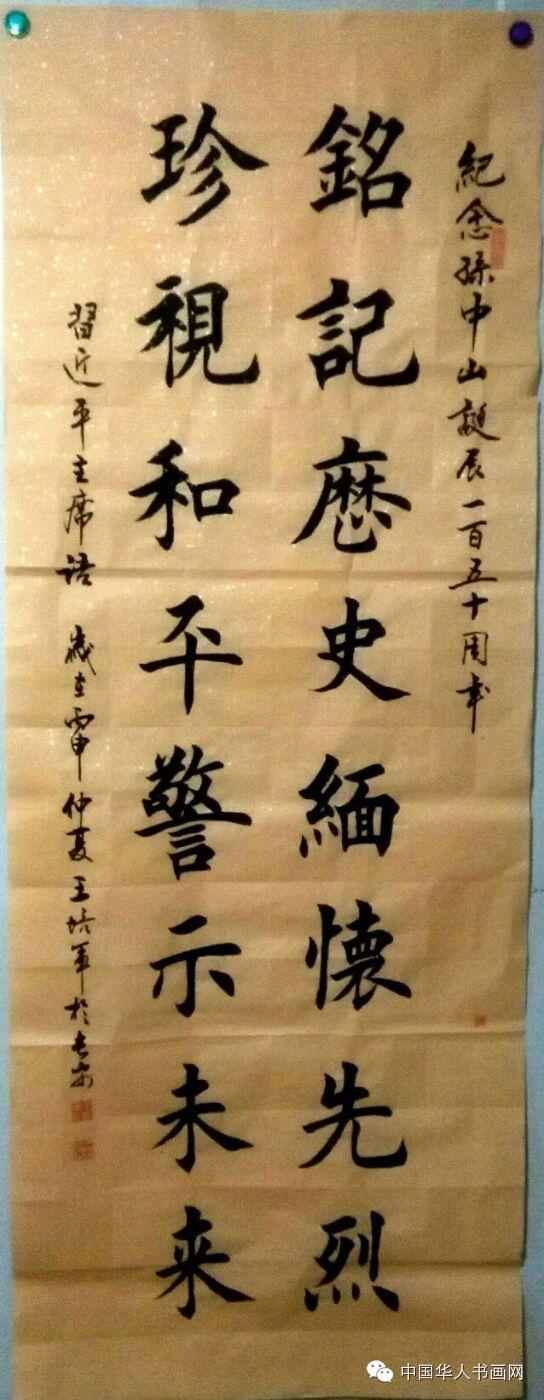 紀念孫中山誕辰一百五十周年
銘記歴史緬懷先烈
珍視和平警示未来
習近平主席語 歲在丙申仲夏王培軍於長安
中国华人书画网